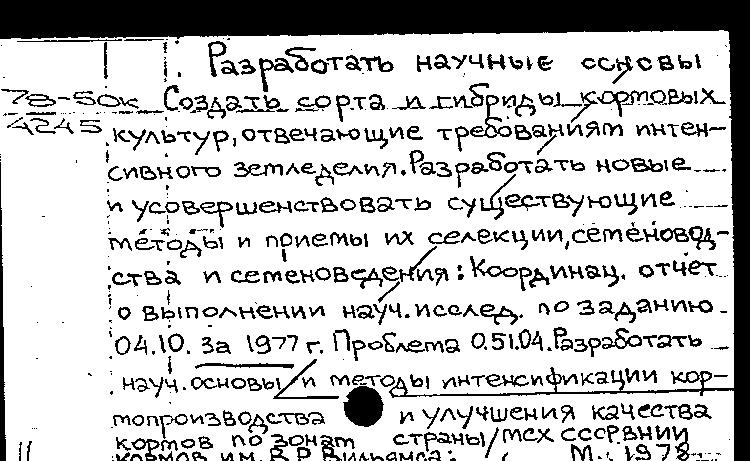 Разработать научные основы
78-50к Создать сорта и гибриды кормовых
4245 культур, отвечающие требованиям интен-
сивного земледелия. Разработать новые
и усовершенствовать существующие
методы и приемы их селекции, семеновод-
ства и семеноведения: Координац. отчет
о выполнении науч. исслед. по заданию
04.10. за 1977 г. Проблема 0.51.04. Разработать
науч. основы и методы интенсификации кор-
мопроизводства и улучшения качества
кормов по зонам страны / МСХ СССР. ВНИИ
кормов им. В.Р. Вильямса; М., 1978
11